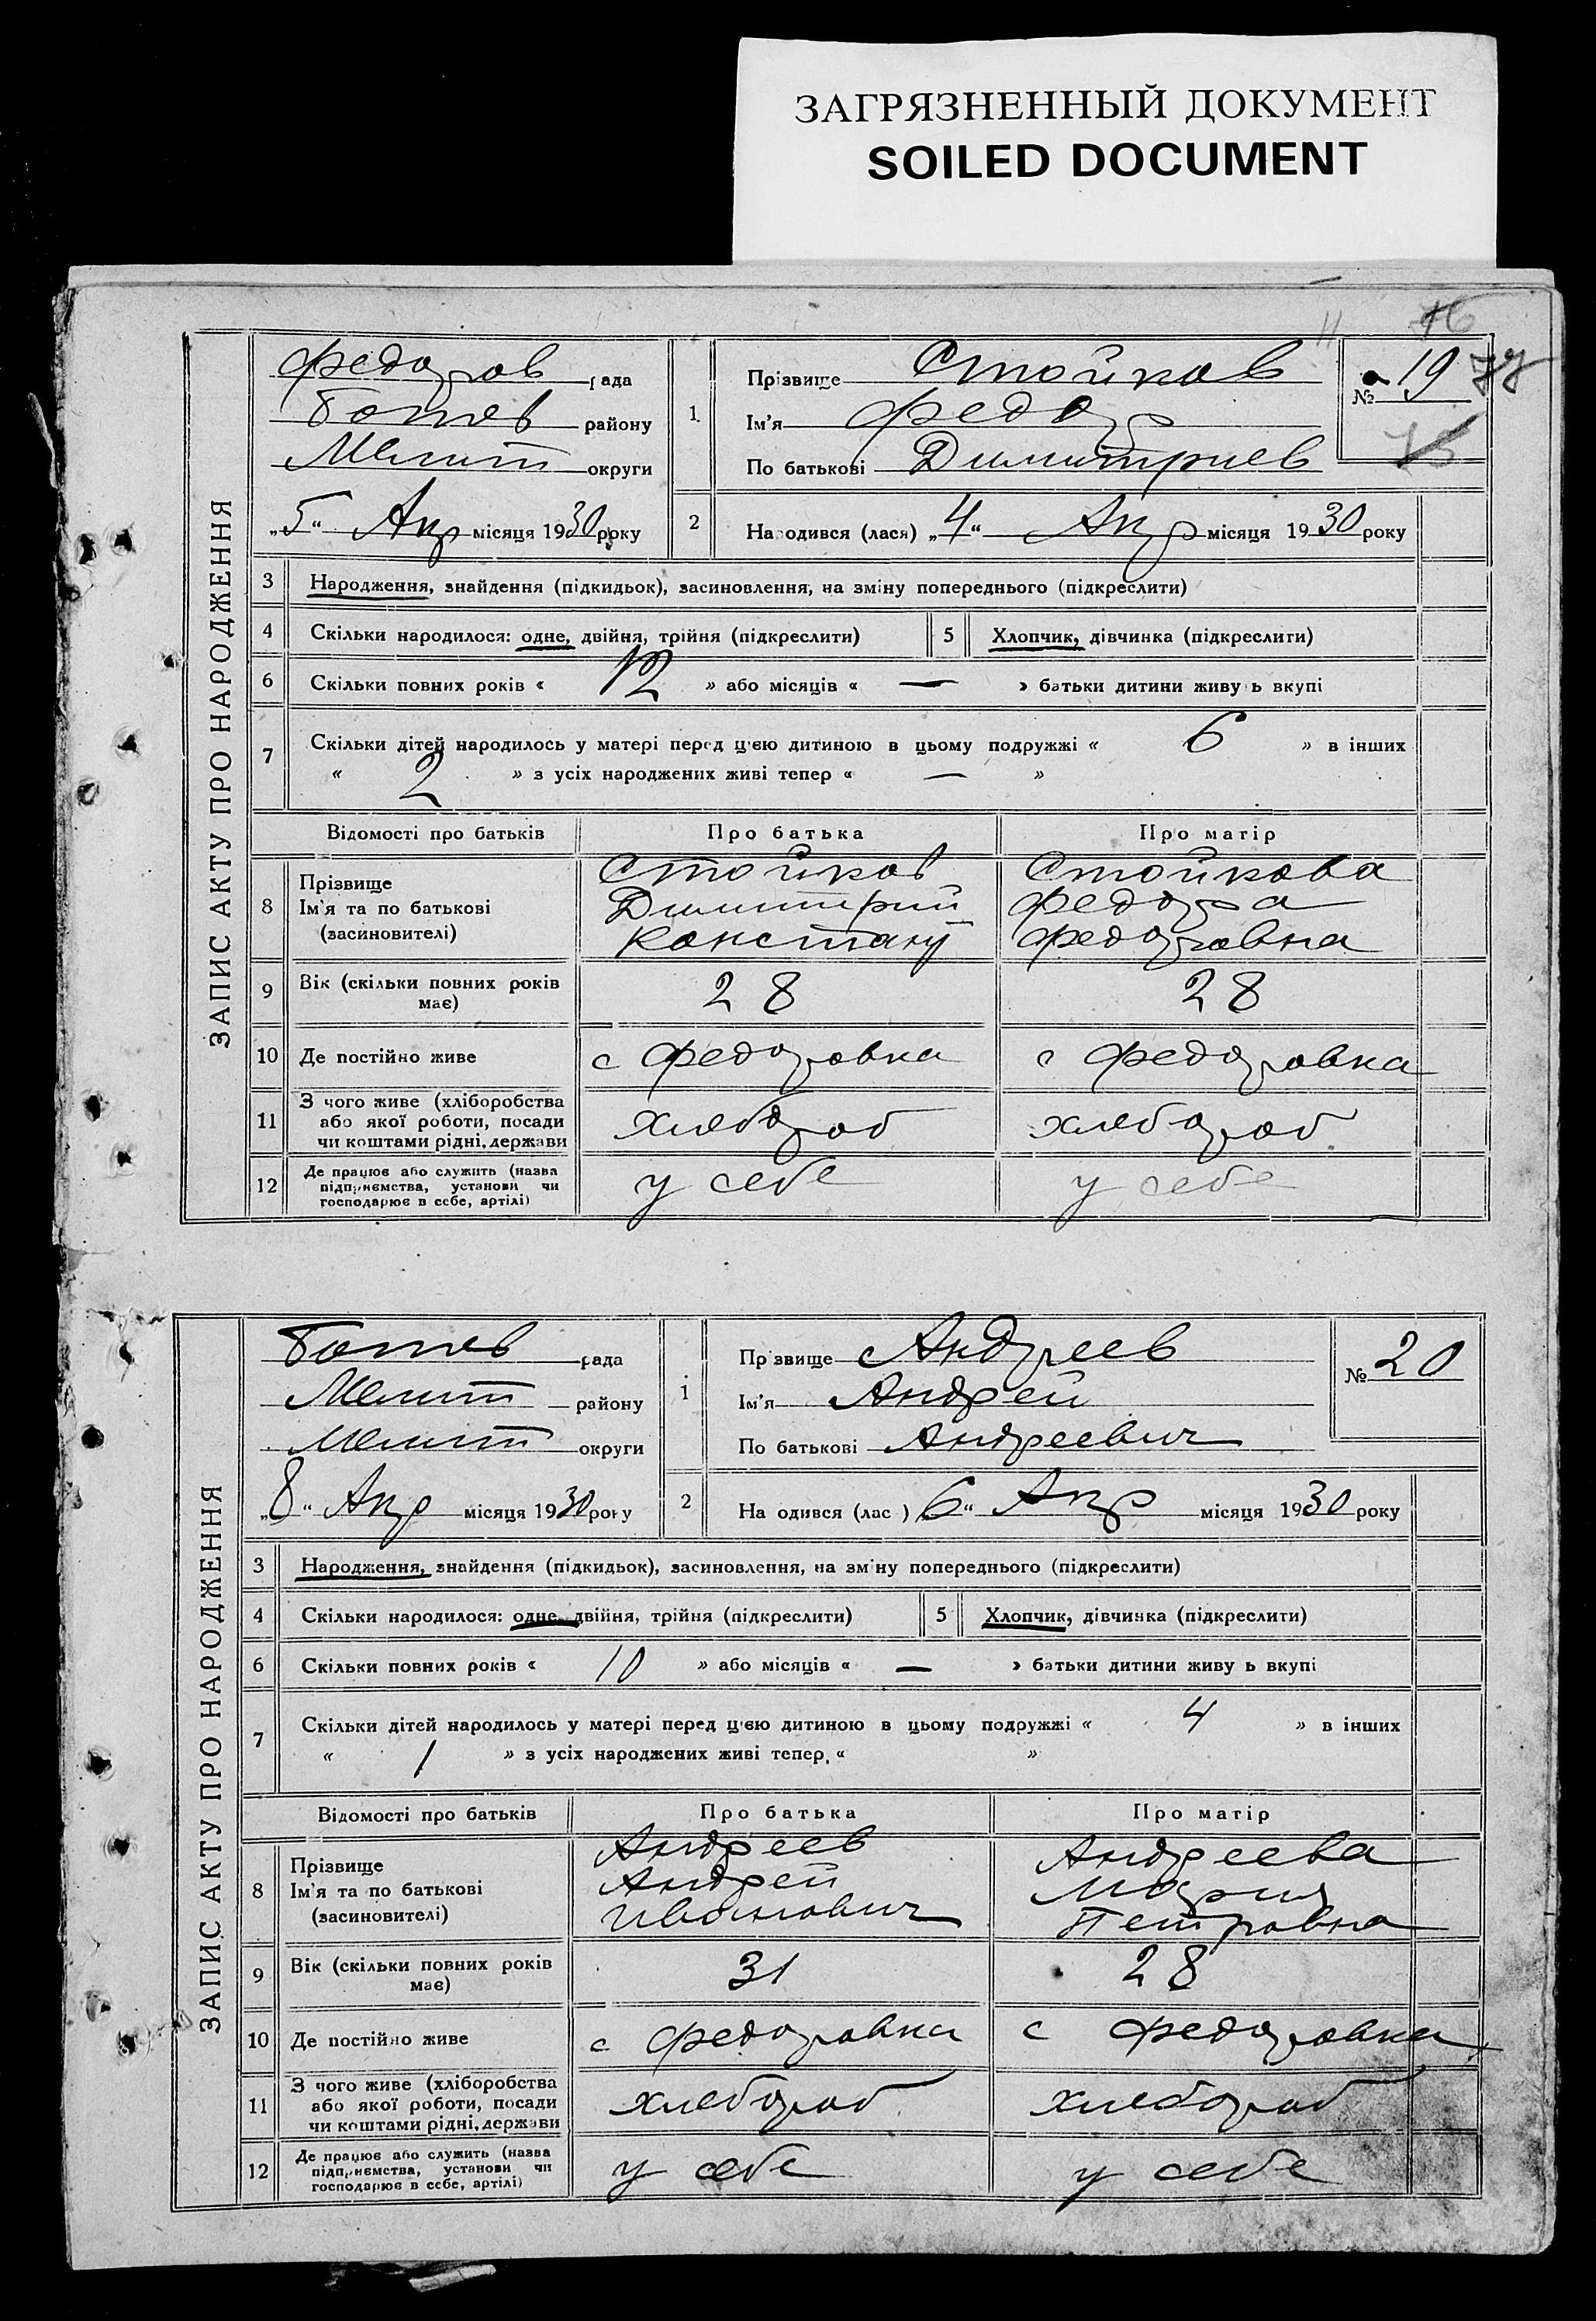 ЗАГРЯЗНЕННЫЙ ДОКУМЕНТ
SOILED DOCUMENT
11 76
ЗАПИС АКТУ ПРО НАРОДЖЕННЯ
Федоров рада
Ботев району
Мелит округи
„5“ Апр місяця 1930 року
1. Прізвище Стойков
Ім'я Федор
По батькові Димитриев
№ 19 77
75
2 Народився (лася) „4“ Апр місяця 1930 року
3 Народження, знайдення (підкидьок), засиновлення, на зміну попереднього (підкреслити)
4 Скільки народилося: одне, двійня, трійня (підкреслити) 5 Хлопчик, дівчинка (підкреслити)
6 Скільки повних років « 12 » або місяців « — » батьки дитини живуть вкупі
7 Скільки дітей народилось у матері перед цією дитиною в цьому подружжі « 6 » в інших
« 2 » з усіх народжених живі тепер « — »
Відомості про батьків Про батька Про матір
8 Прізвище Ім'я та по батькові (засиновителі)
Стойков Стойкова
Димитрий Федора
Констант Федоровна
9 Вік (скільки повних років має) 28 28
10 Де постійно живе с Федоровка с Федоровка
11 З чого живе (хліборобства
або якої роботи, посади
чи коштами рідні, держави
хлебороб хлебороб
12 Де працює або служить (назва
підприємства, установи чи
господарює в себе, артілі)
у себе у себе
ЗАПИС АКТУ ПРО НАРОДЖЕННЯ
Ботев рада
Мелит району
Мелит округи
„8“ Апр місяця 1930 року
1 Прізвище Андреев
Ім'я Андрей
По батькові Андреевич
№ 20
2 Народився (лас ) „6“ Апр місяця 1930 року
3 Народження, знайдення (підкидьок), засиновлення, на зміну попереднього (підкреслити)
4 Скільки народилося: одне, двійня, трійня (підкреслити) 5 Хлопчик, дівчинка (підкреслити)
6 Скільки повних років « 10 » або місяців « — » батьки дитини живуть вкупі
7 Скільки дітей народилось у матері перед цією дитиною в цьому подружжі « 4 » в інших
« 1 » з усіх народжених живі тепер, « »
Відомості про батьків Про батька Про матір
8 Прізвище Ім'я та по батькові (засиновителі)
Андреев Андреева
Андрей Мария
Иванович Петровна
9 Вік (скільки повних років має) 31 28
10 Де постійно живе с Федоровка с Федоровка
11 З чого живе (хліборобства
або якої роботи, посади
чи коштами рідні, держави
хлебороб хлебороб
12 Де працює або служить (назва
підприємства, установи чи
господарює в себе, артілі)
у себе у себе